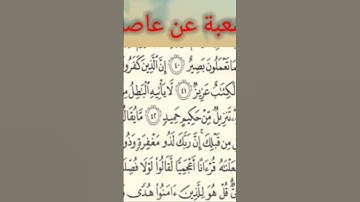 عبة عن عاص
مَا تَعْمَلُونَ بَصِيرٌ ٤٠ إِنَّ ٱلَّذِينَ كَفَرُوا
لَكِتَٰبٌ عَزِيزٌ ٤١ لَّا يَأْتِيهِ ٱلْبَٰطِلُ مِ
تَنزِيلٌ مِّنْ حَكِيمٍ حَمِيدٍ ٤٢ مَّا يُقَالُ
مِن قَبْلِكَ إِنَّ رَبَّكَ لَذُو مَغْفِرَةٍ وَذُو
جَعَلْنَٰهُ قُرْءَانًا أَعْجَمِيًّا لَّقَالُوا لَوْلَا فُصِّلَ
قُلْ هُوَ لِلَّذِينَ ءَامَنُوا هُدًى وَ